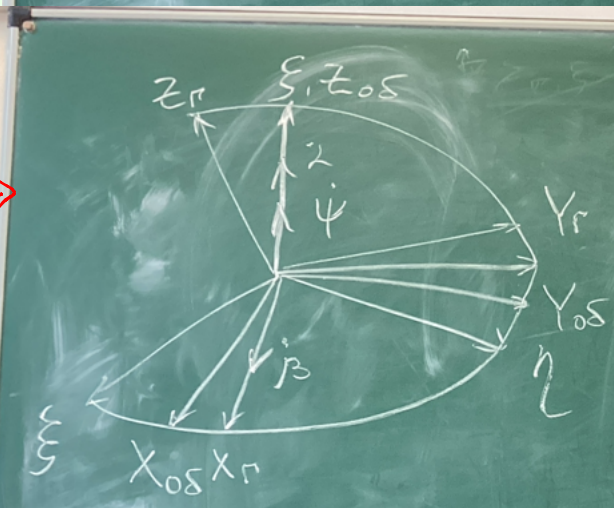 Zг
ξ, Zоб
α̇
ψ̇
Yг
Yоб
η
β̇
ξ
Xоб Xг